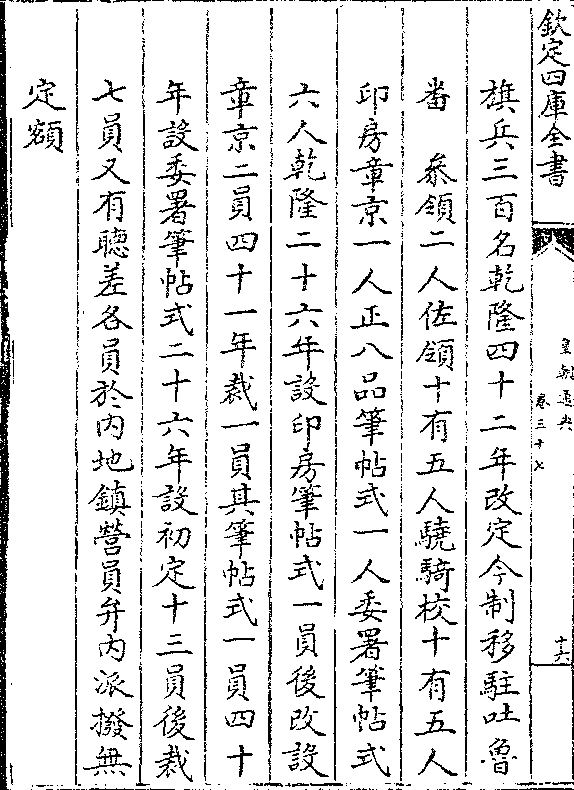 欽定四庫全書
皇朝通典
卷三十七
十六
旗兵三百名乾隆四十二年改定今制移駐吐魯
番　叅領二人佐領十有五人驍騎校十有五人
印房章京一人正八品筆帖式一人委署筆帖式
六人乾隆二十六年設印房筆帖式一員後改設
章京二員四十一年裁一員其筆帖式一員四十
年設委署筆帖式二十六年設初定十三員後裁
七員又有聽差各員於内地鎮營員弁内派撥無
定額